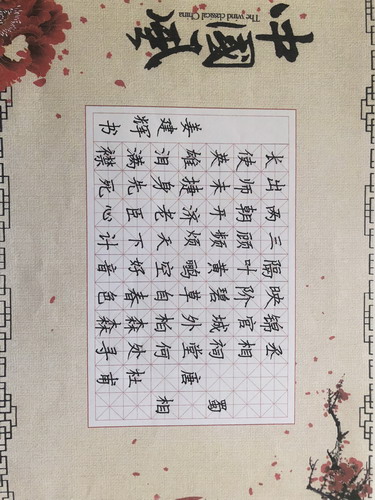 中國風
The wind classical China
蜀相
唐杜甫
丞相祠堂何处寻
锦官城外柏森森
映阶碧草自春色
隔叶黄鹂空好音
三顾频烦天下计
两朝开济老臣心
出师未捷身先死
长使英雄泪满襟
姜建辉书